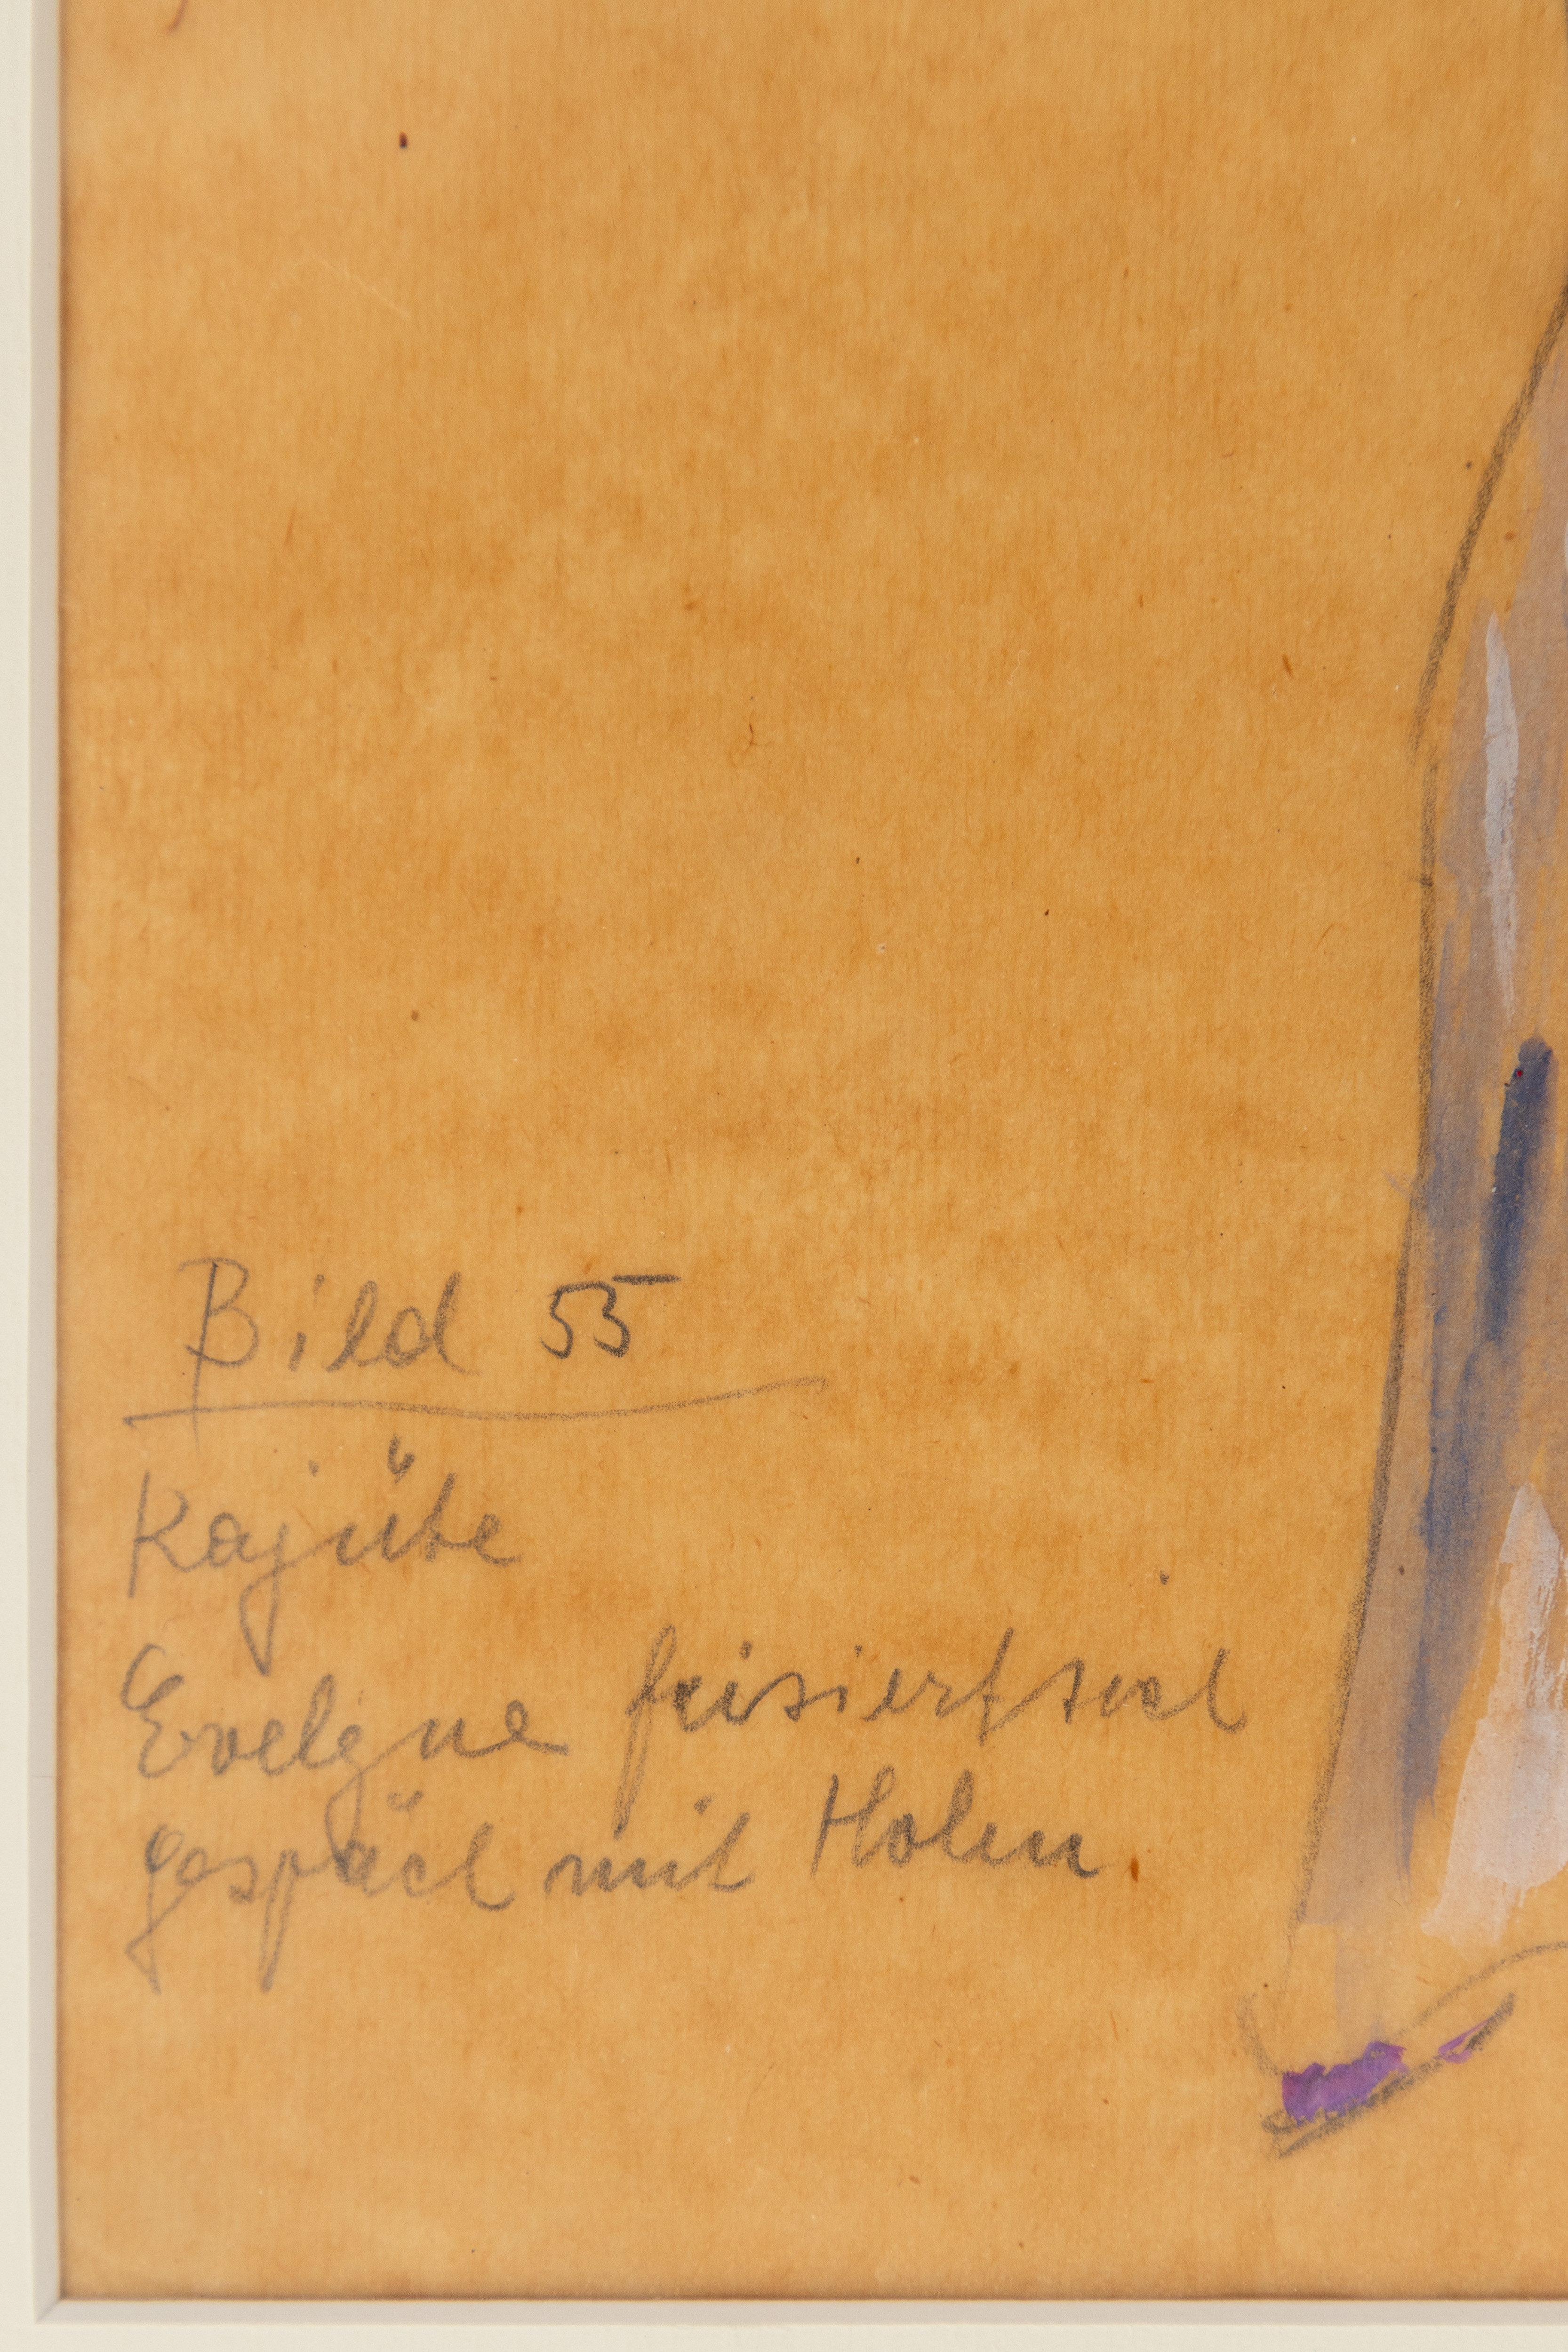 Bild 55
Kajüte
Evelyne frisiert sich
gespäch mit Holen